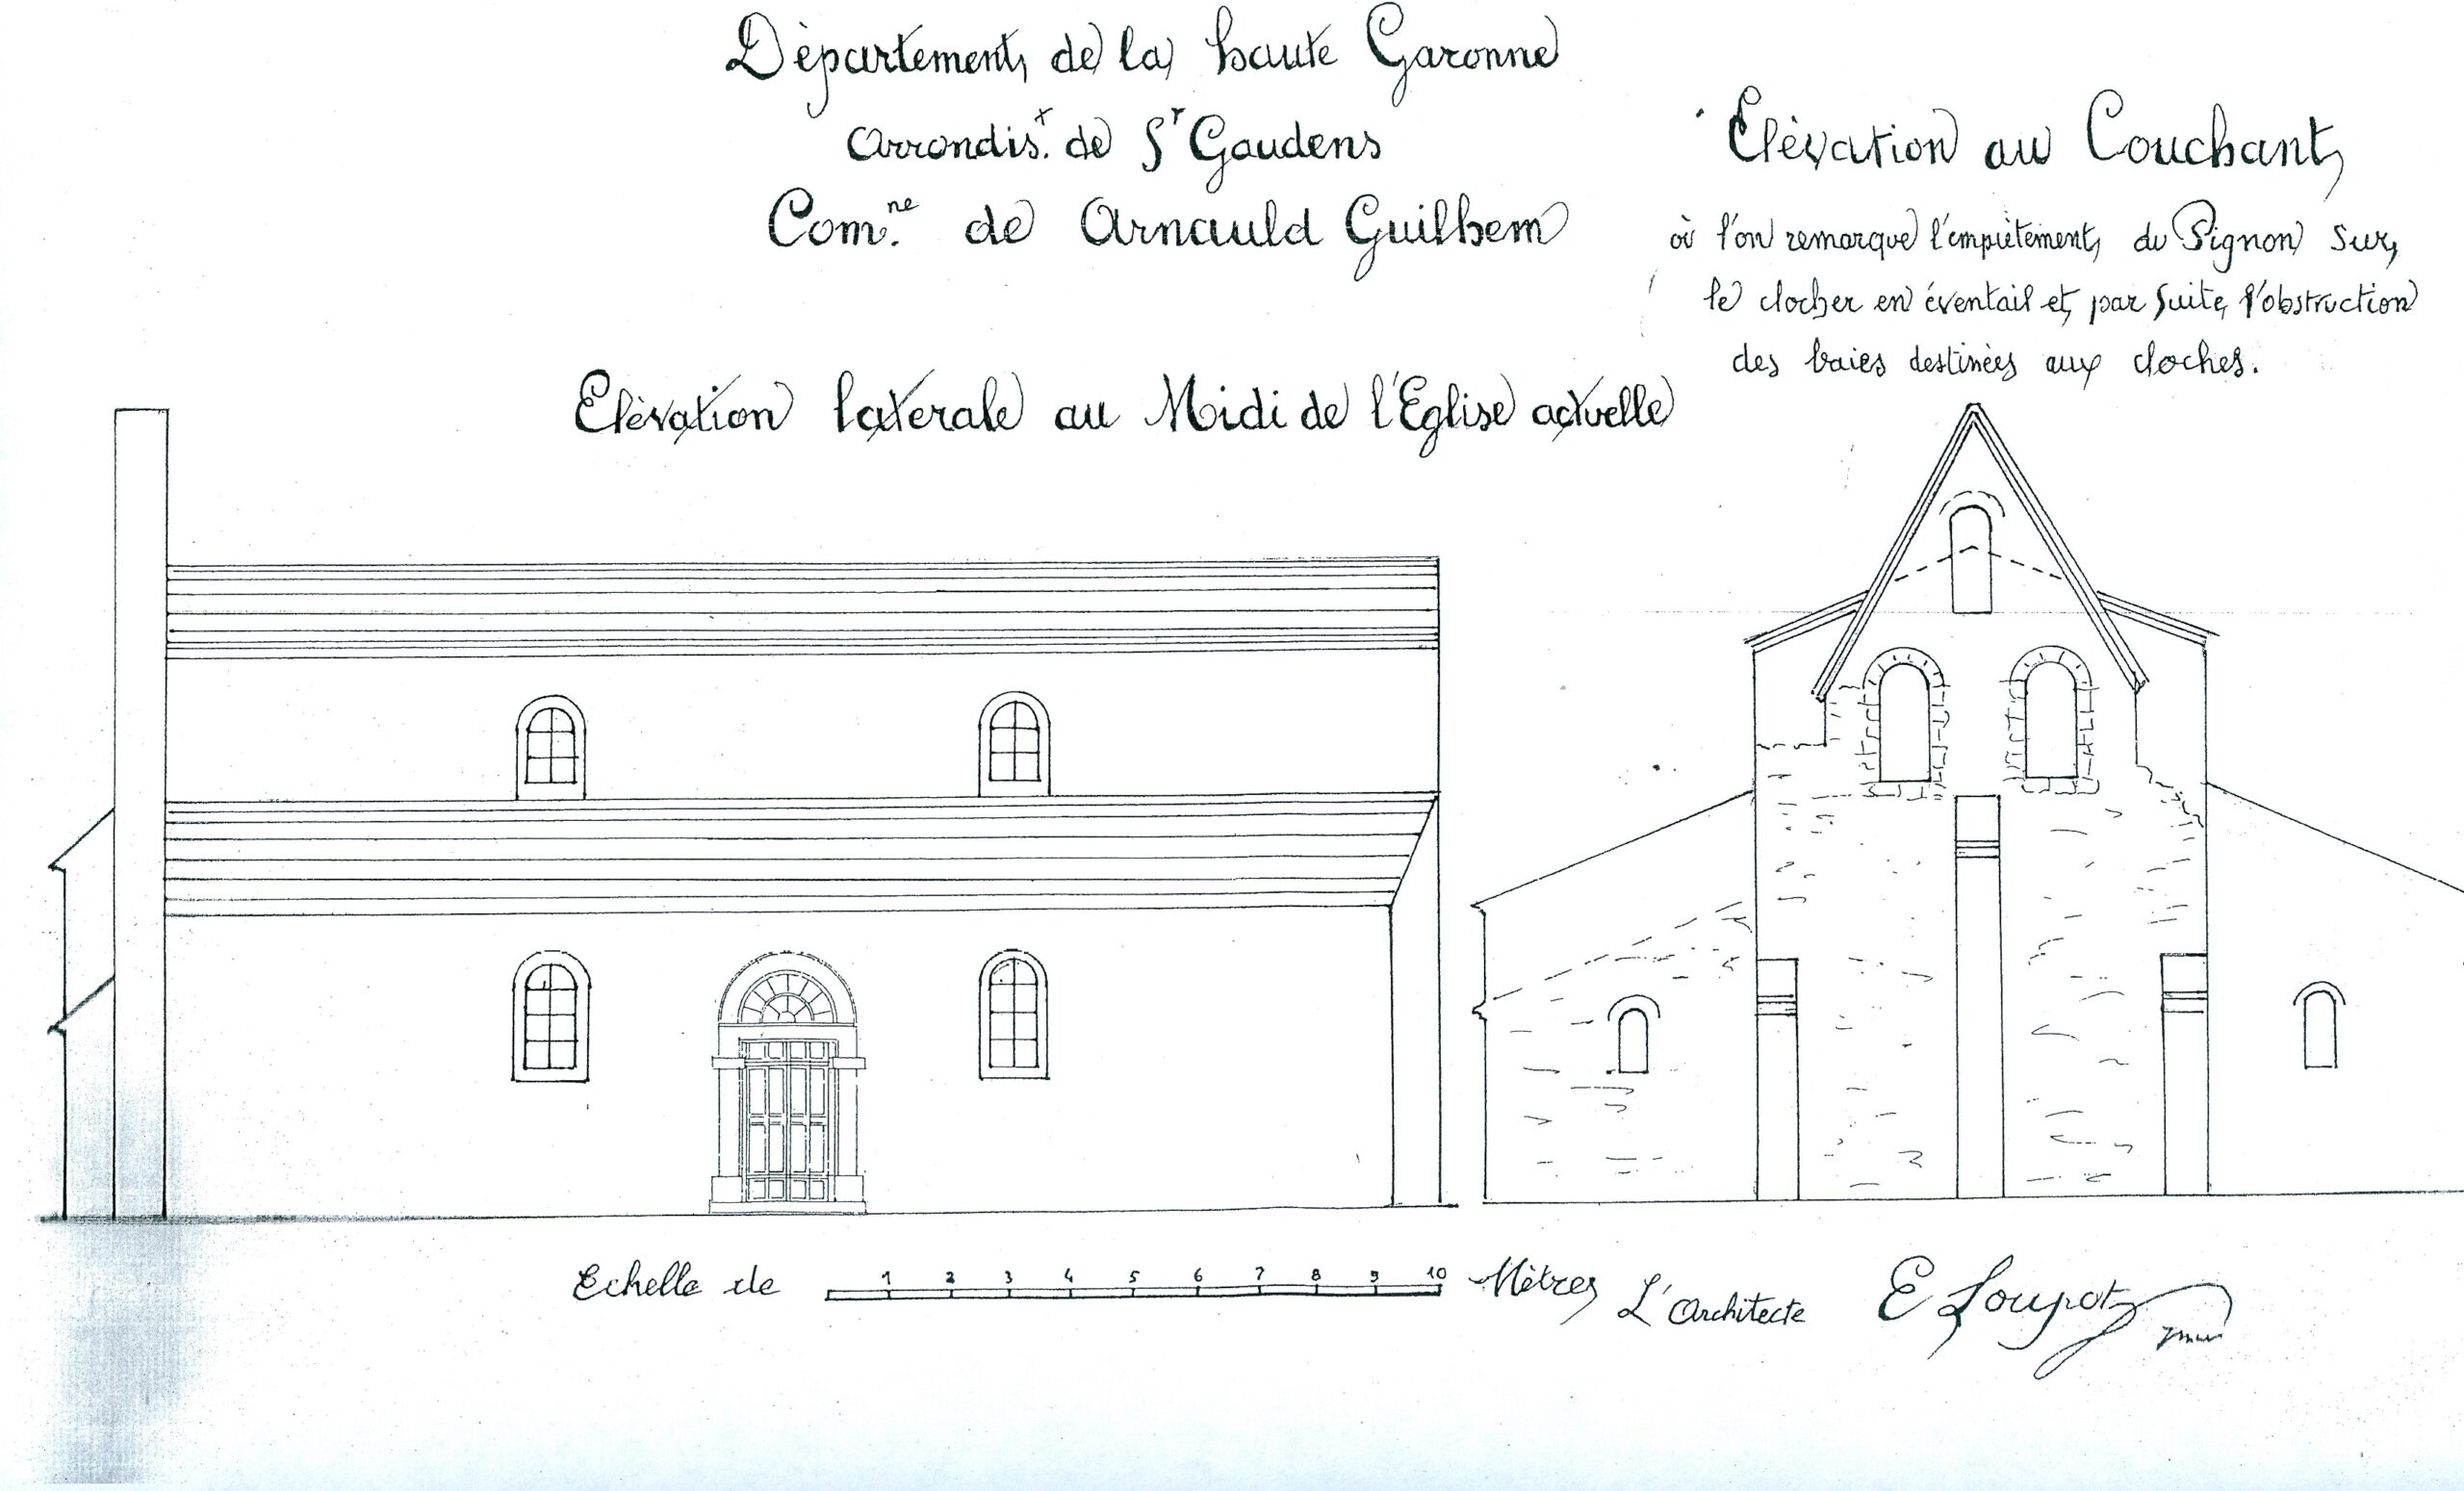 Département de la haute Garonne
Arrondis.t de St Gaudens
Com.ne de Arnauld Guilhem
Elèvation au Couchant
où l'on remarque l'empiètement du Pignon sur
le clocher en éventail et par suite l'obstruction
des baies destinées aux cloches.
Elèvation laterale au Midi de l'Eglise actuelle
Echelle de 1 2 3 4 5 6 7 8 9 10 Mètres
L'Architecte E Loupot